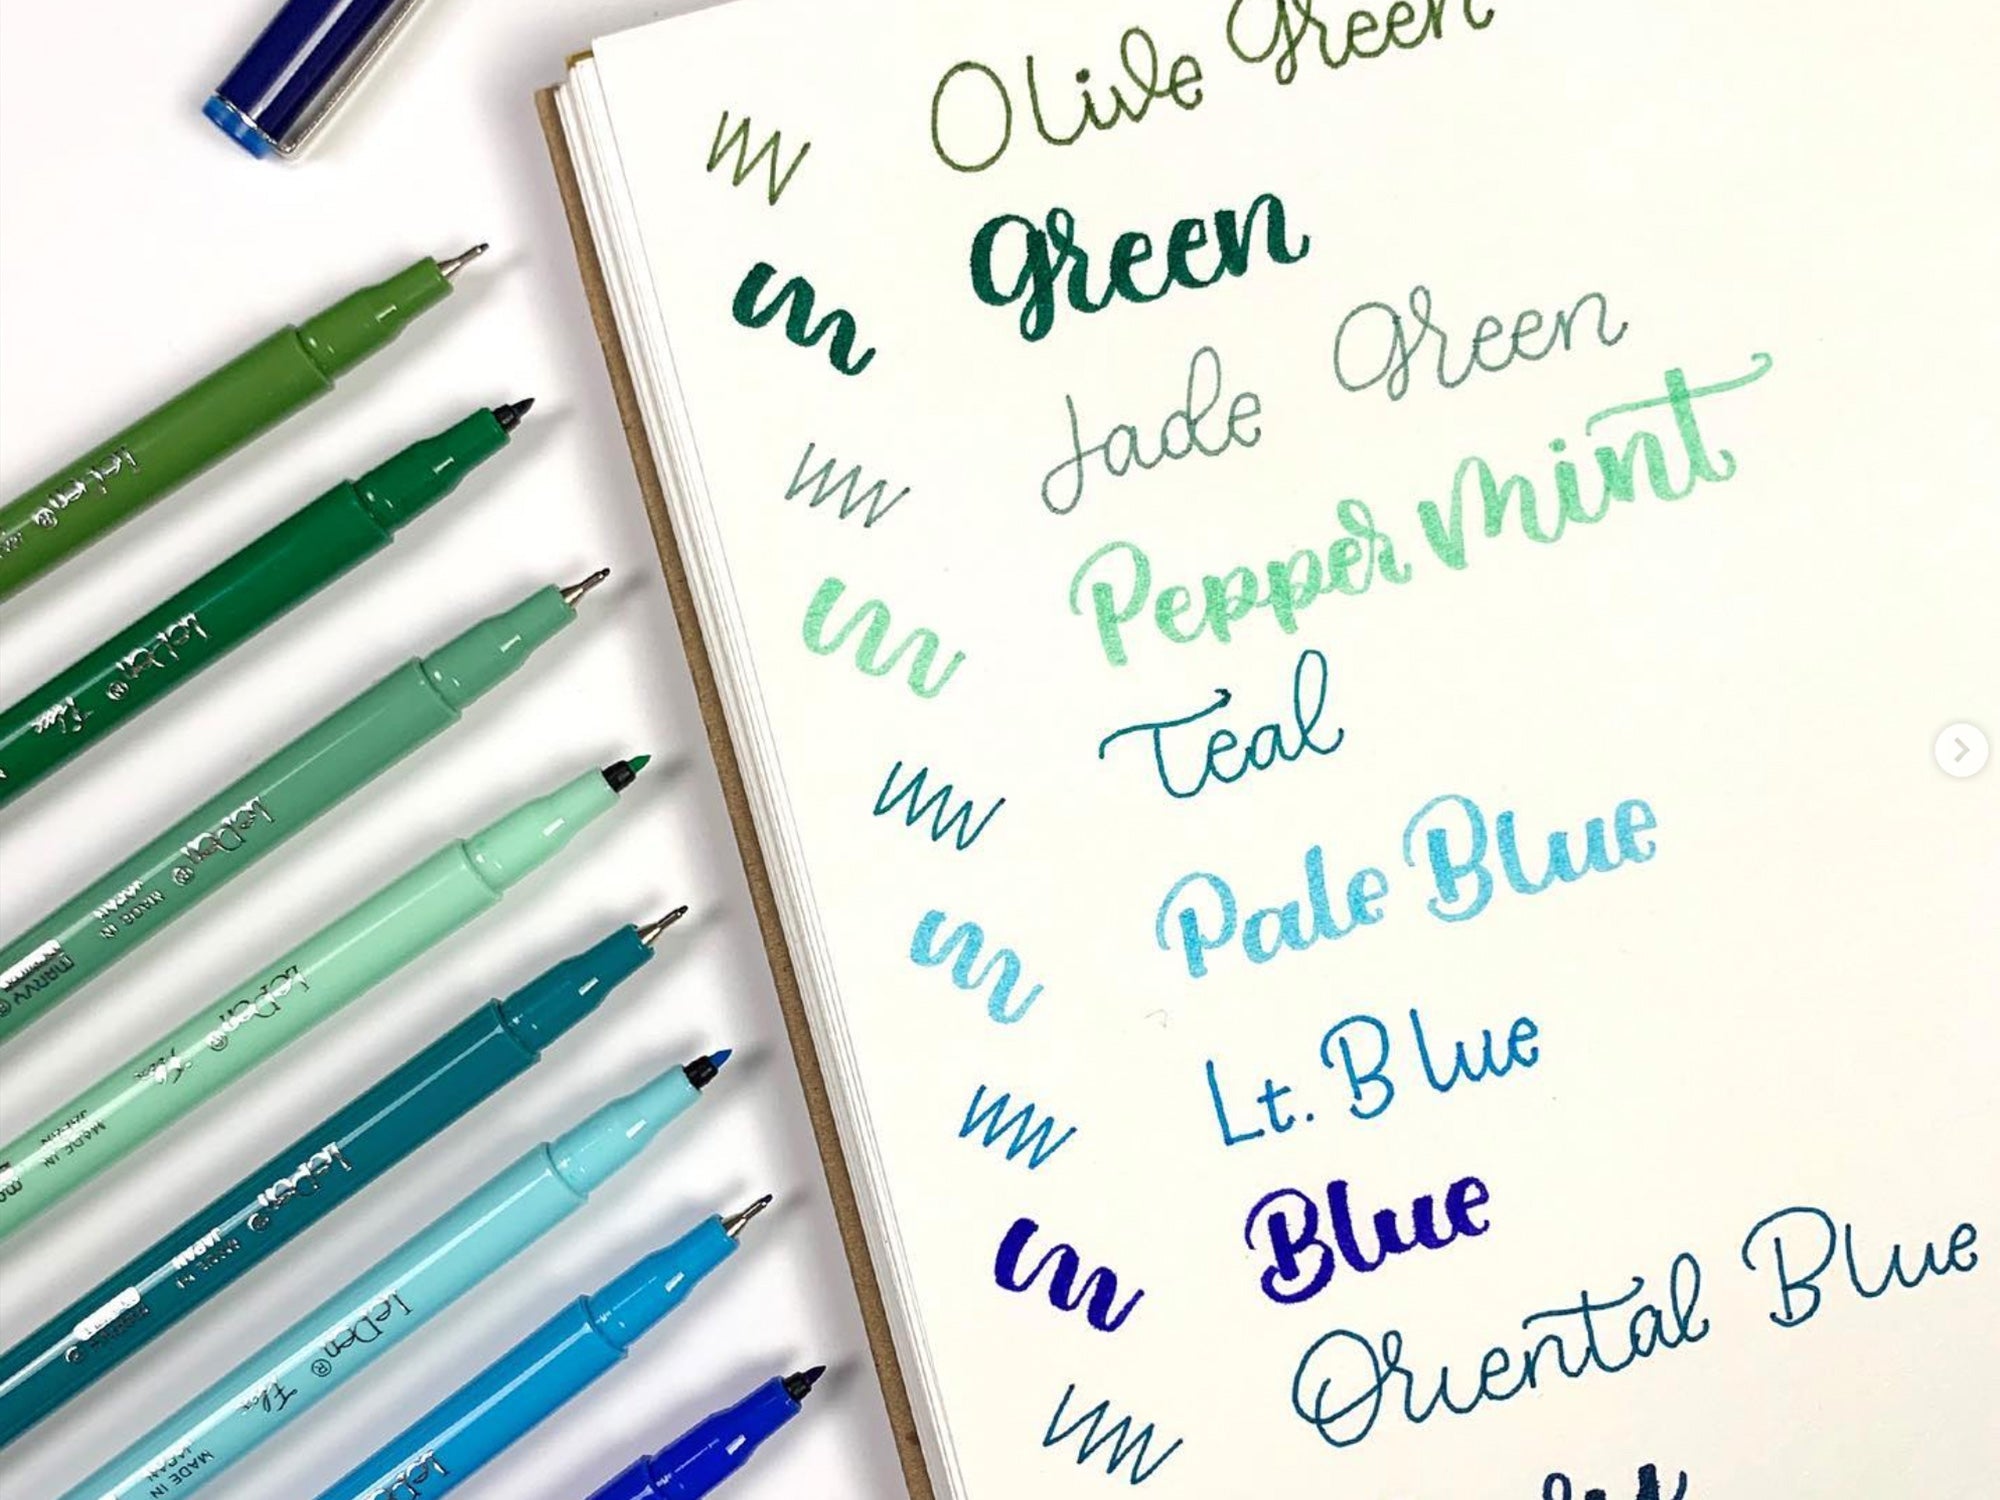 Olive Green
Green
Jade Green
Peppermint
Teal
Pale Blue
Lt. Blue
Blue
Oriental Blue
LePen
LePen Flex
LePen
MADE IN
JAPAN
MARVY
LePen Flex
MADE IN
JAPAN
LePen
MADE IN
JAPAN
LePen® Flex
MADE IN
JAPAN
LePen